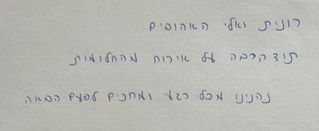 רונית ואלי האהובים
תודה רבה על אירוח מהחלומות
נהנינו מכל רגע ומחכים לפעם הבאה